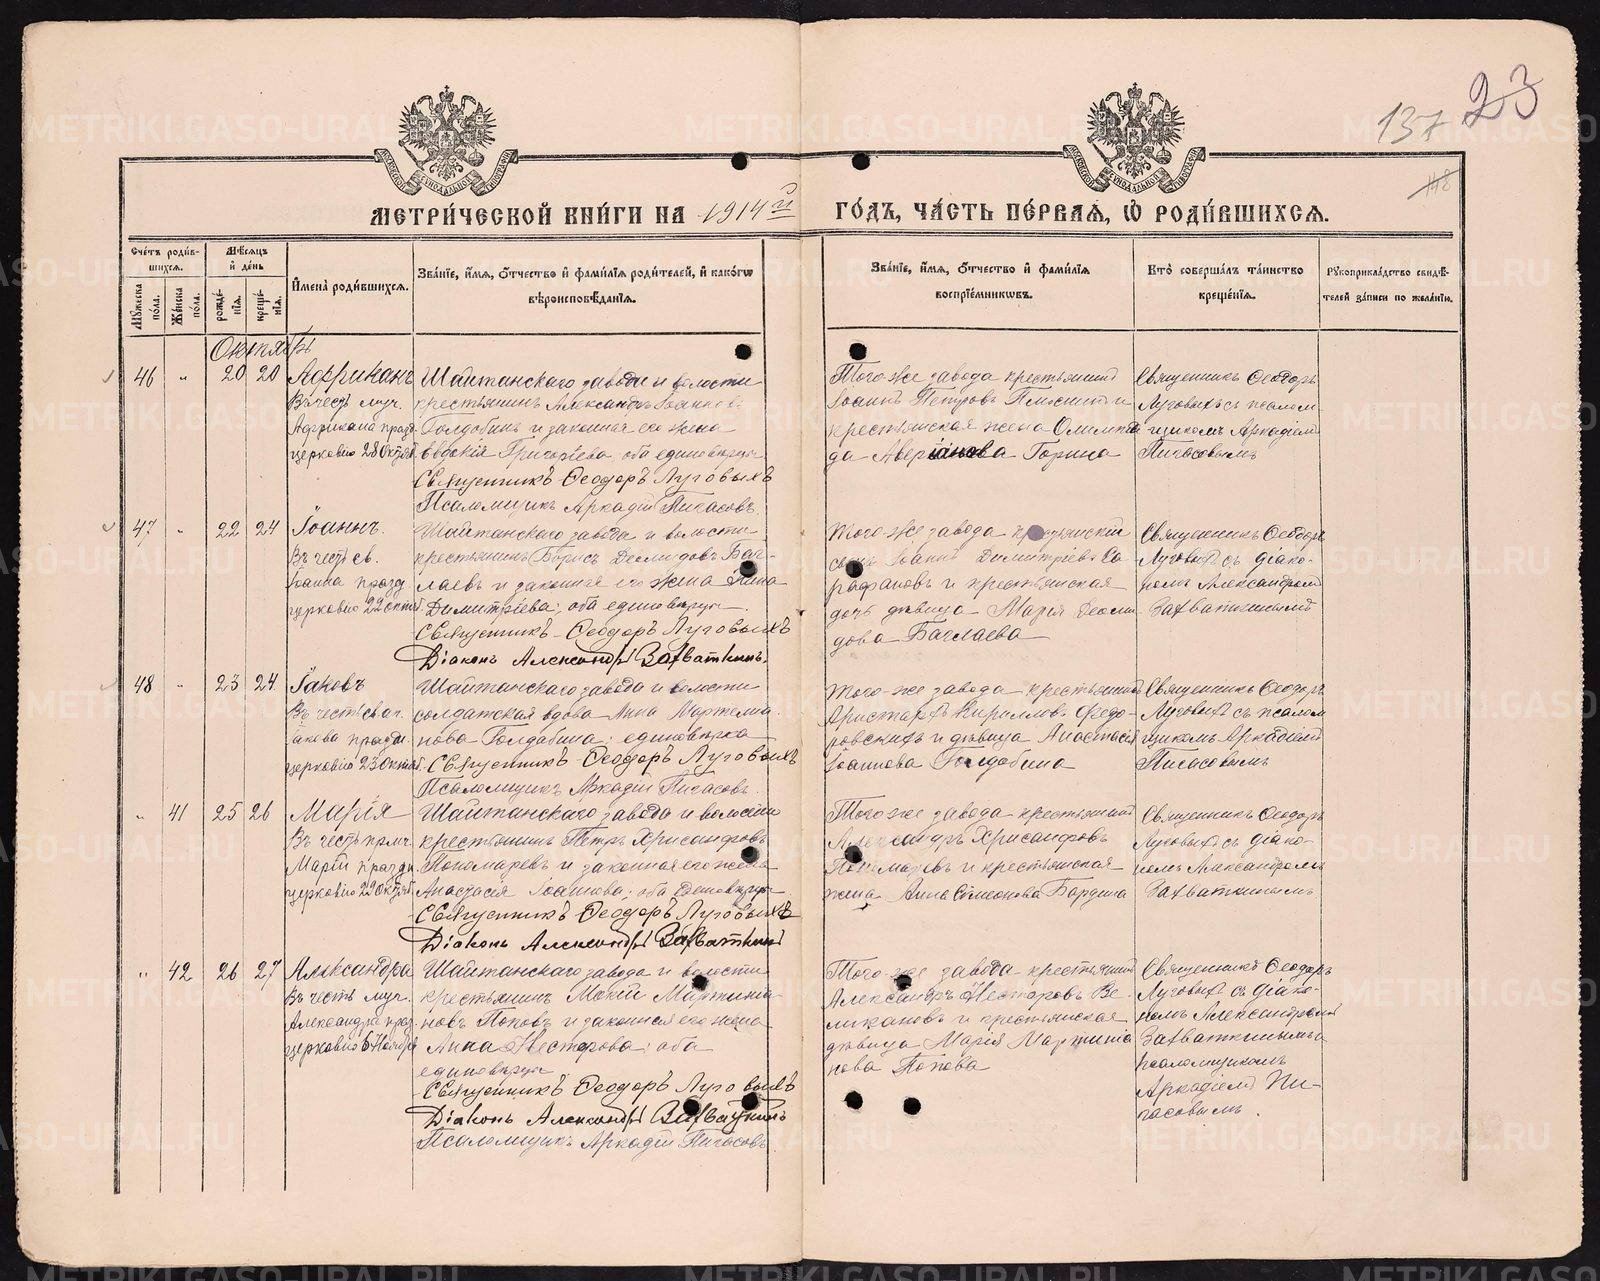 137 23
118
МЕТРИ́ЧЕСКОЙ КНИ́ГИ НА 1914й ГО́ДЪ, ЧА́СТЬ ПЕ́РВАѦ, Ѡ҆ РОДИ́ВШИХСѦ.
Сче́тъ роди́вшихся.
Мѣ́сяцъ и҆ де́нь
Мꙋ́жеска по́ла.
Же́нска по́ла.
рожде́нїѧ.
креще́нїѧ.
И҆мена̀ роди́вшихсѧ.
Зва́нїе, и҆́мѧ, ѻ҆́тчество и҆ фами́лїѧ роди́телей, и҆ како́гѡ
вѣроисповѣ́данїѧ.
Зва́нїе, и҆́мѧ, ѻ҆́тчество и҆ фами́лїѧ
воспрїе́мникѡвъ.
Кто̀ соверша́лъ та́инство
креще́нїѧ.
Рꙋкоприкла́дство свидѣ́-
телей за́писи по жела́нїю.
Октябрь
46 " 20 20
Африканъ
Въ честь муч.
Африкана празд.
церковію 28 Октяб.
Шайтанскаго завода и волости
крестьянинъ Александръ Іоаннов.
Голдобинъ и законная его жена
Евдокія Григорьева оба единоверцы
Священникъ Ѳеодоръ Луговыхъ
Псаломщикъ Аркадій Пигасовъ.
Того-же завода крестьянинъ
Іоаннъ Петровъ и
крестьянская жена Олимпіа
да Аверіанова Горина
Священникъ Ѳеодоръ
Луговыхъ съ псалом-
щикомъ Аркадіемъ
Пигасовымъ
47 " 22 24
Іоаннъ.
Въ честь св.
Іоанна празд.
церковію 22 октяб.
Шайтанскаго завода и волости
крестьянинъ Борисъ Деомидовъ Баг-
лаевъ и законная его жена Анна
Димитріева; оба единоверцы.
Священникъ Ѳеодоръ Луговыхъ
Діаконъ Александръ Захваткинъ.
Того-же завода крестьянскій
сынъ Іоаннъ Димитріевъ Са
рафановъ и крестьянская
дочь девица Марія Деоми
дова Баглаева
Священникъ Ѳеодоръ
Луговыхъ съ діако-
номъ Александромъ
Захваткинымъ
48 " 23 24
Іаковъ
Въ честь св. ап.
Іакова праздн.
церковію 23 октяб.
Шайтанскаго завода и волости
солдатская вдова Анна Мартемиа
нова Голдобина; единоверка
Священникъ Ѳеодоръ Луговыхъ
Псаломщикъ Аркадій Пигасовъ.
Того-же завода крестьянинъ
Аристархъ Кирилловъ Ѳедо-
ровскихъ и девица Анастасія
Іоаннова Голдобина
Священникъ Ѳеодоръ
Луговыхъ съ псалом
щикомъ Аркадіемъ
Пигасовымъ
" 41 25 26
Марія
Въ честь прмч.
Маріи праздн.
церковію 29 Октяб.
Шайтанскаго завода и волости
крестьянинъ Петръ Хрисанфовъ
Пономаревъ и законная его жена
Анастасія Іоаннова; оба единоверцы.
Священникъ Ѳеодоръ Луговыхъ
Діаконъ Александръ Захваткинъ
Того-же завода крестьянинъ
Александръ Хрисанфовъ
Пономаревъ и крестьянская
жена Анна Симеонова Бардина
Священникъ Ѳеодоръ
Луговыхъ съ діако-
номъ Александромъ
Захваткинымъ
" 42 26 27
Александра
Въ честь муч.
Александра праз.
церковію 6 Ноября
Шайтанскаго завода и волости
крестьянинъ Мокій Мартиніа
новъ Поповъ и законная его жена
Анна Несторова; оба
единоверцы
Священникъ Ѳеодоръ Луговыхъ
Діаконъ Александръ Захваткинъ
Псаломщикъ Аркадій Пигасовъ
Того-же завода крестьянинъ
Александръ Несторовъ Ве-
ликановъ и крестьянская
девица Марія Мартиніа
нова Попова
Священникъ Ѳеодоръ
Луговыхъ съ діако-
номъ Александромъ
Захваткинымъ и
псаломщикомъ
Аркадіемъ Пи-
гасовымъ.
METRIKI.GASO-URAL.RU